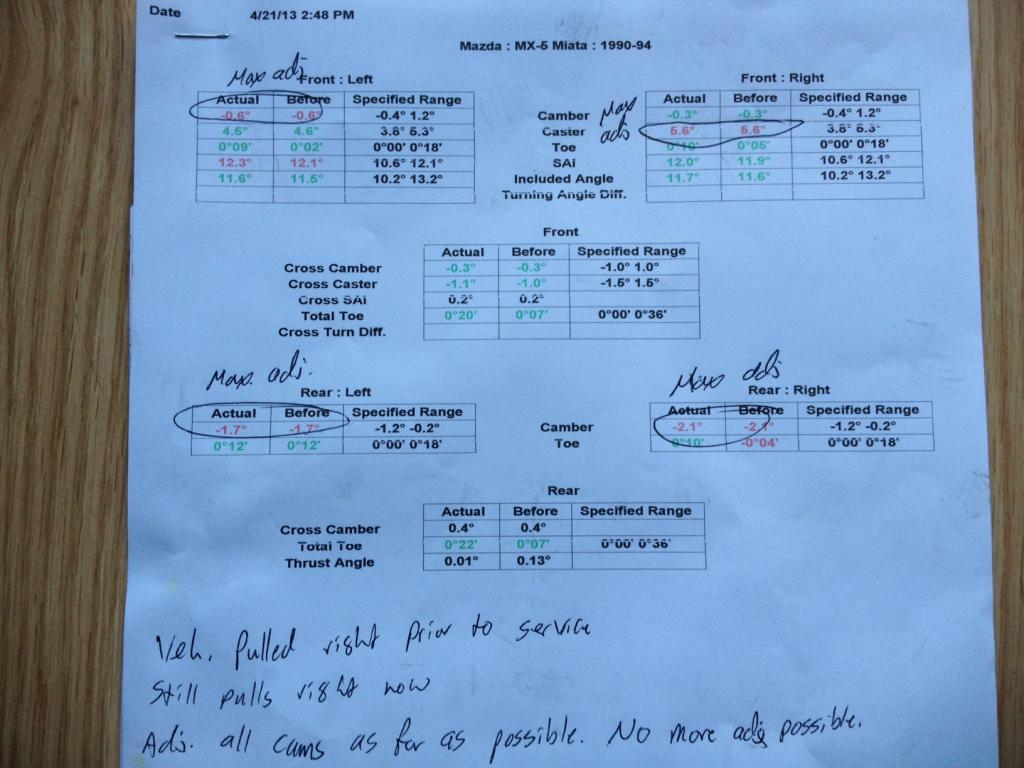 Date 4/21/13 2:48 PM
Mazda : MX-5 Miata : 1990-94
Max adj
Front : Left
Front : Right
Actual Before Specified Range
Actual Before Specified Range
-0.6° -0.6° -0.4° 1.2° Camber Max -0.3° -0.3° -0.4° 1.2°
4.5° 4.6° 3.8° 5.3° Caster adj 5.6° 5.6° 3.8° 5.3°
0°09' 0°02' 0°00' 0°18' Toe 0°10' 0°05' 0°00' 0°18'
12.3° 12.1° 10.6° 12.1° SAI 12.0° 11.9° 10.6° 12.1°
11.6° 11.5° 10.2° 13.2° Included Angle 11.7° 11.6° 10.2° 13.2°
Turning Angle Diff.
Front
Actual Before Specified Range
Cross Camber -0.3° -0.3° -1.0° 1.0°
Cross Caster -1.1° -1.0° -1.5° 1.5°
Cross SAI 0.2° 0.2°
Total Toe 0°20' 0°07' 0°00' 0°36'
Cross Turn Diff.
Max. adj.
Max adj
Rear : Left
Rear : Right
Actual Before Specified Range
Actual Before Specified Range
-1.7° -1.7° -1.2° -0.2° Camber -2.1° -2.1° -1.2° -0.2°
0°12' 0°12' 0°00' 0°18' Toe 0°10' -0°04' 0°00' 0°18'
Rear
Actual Before Specified Range
Cross Camber 0.4° 0.4°
Total Toe 0°22' 0°07' 0°00' 0°36'
Thrust Angle 0.01° 0.13°
Veh. Pulled right prior to service
Still pulls right now
Adj. all cams as far as possible. No more adj possible.